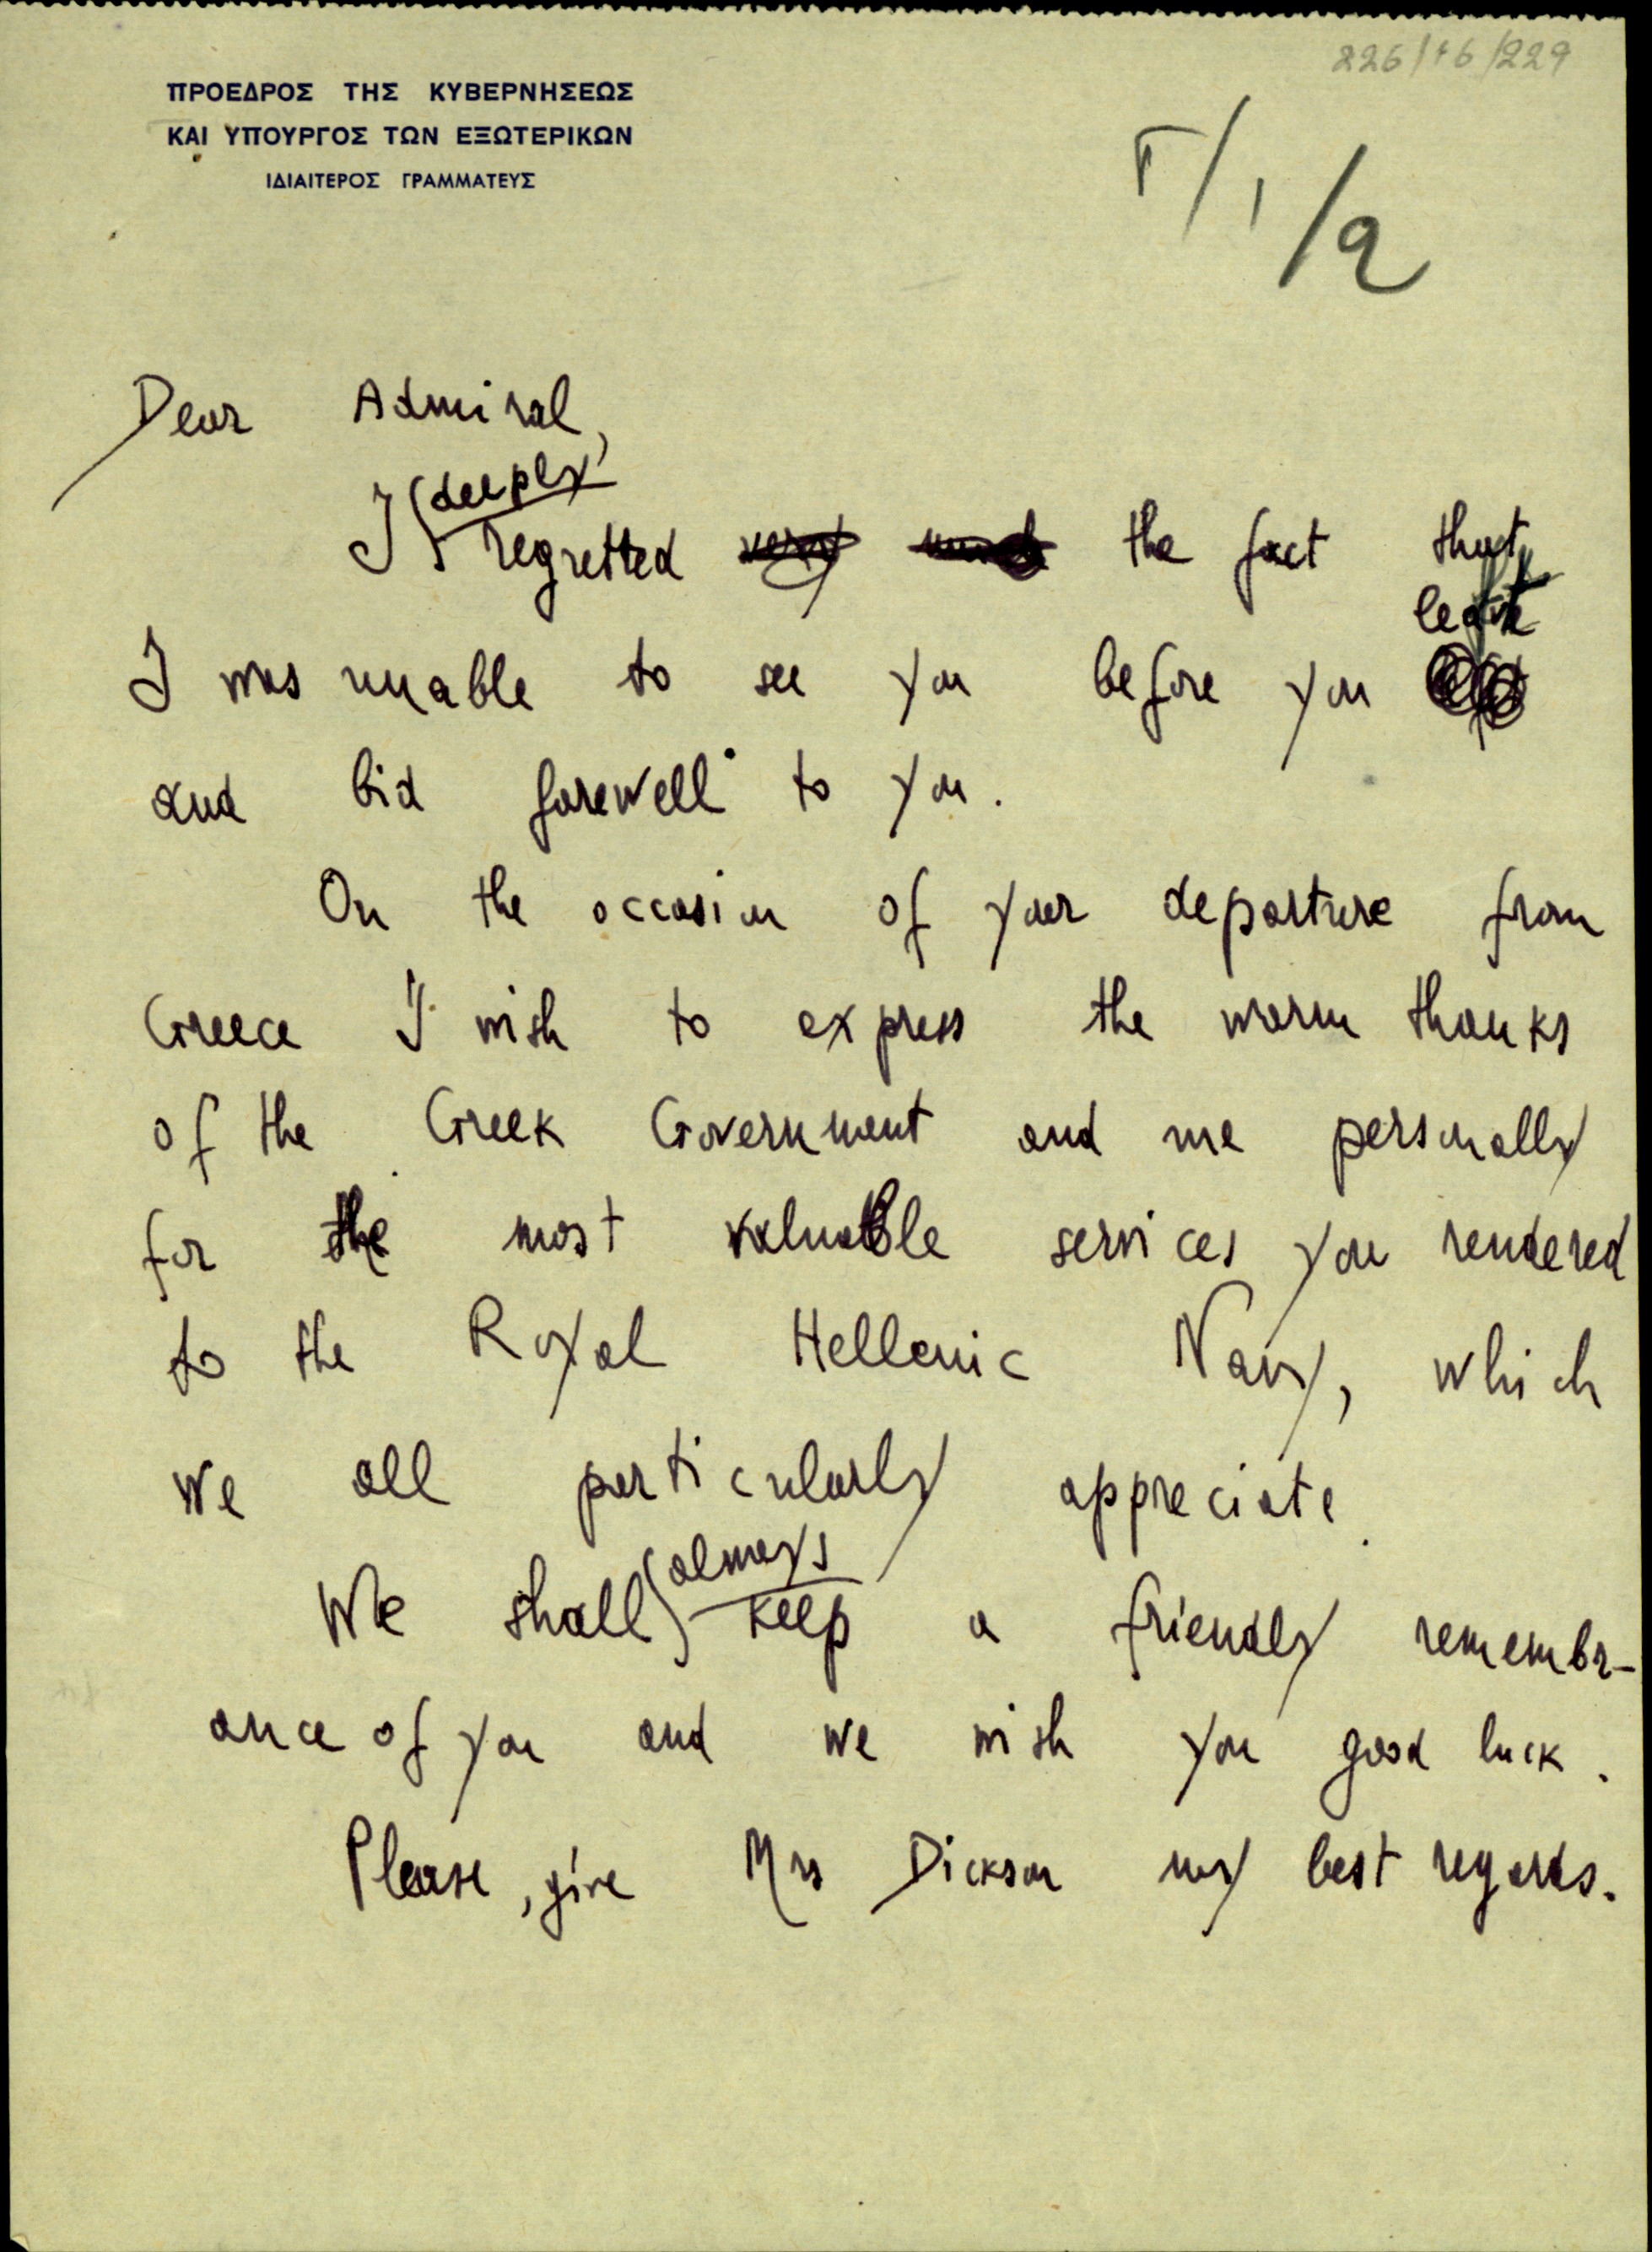 226/16/229
ΠΡΟΕΔΡΟΣ ΤΗΣ ΚΥΒΕΡΝΗΣΕΩΣ
ΚΑΙ ΥΠΟΥΡΓΟΣ ΤΩΝ ΕΞΩΤΕΡΙΚΩΝ
ΙΔΙΑΙΤΕΡΟΣ ΓΡΑΜΜΑΤΕΥΣ
Dear Admiral,
deeply
I regretted very much the fact that
I was unable to see you before you
and bid farewell to you.
On the occasion of your departure from
Greece I wish to express the warm thanks
of the Greek Government and me personally
for the most valuable services you rendered
to the Royal Hellenic Navy, which
we all particularly appreciate.
always
We shall keep a friendly remembr-
ance of you and we wish you good luck.
Please, give Mrs Dickson my best regards.